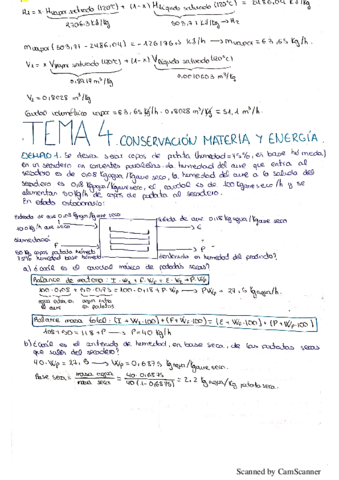 H1 = x · Hvapor saturado (120°C) + (1-x) Hlíquido saturado (120°C) = 2486,04 kJ/kg
2706.3 kJ/kg 503,71 kJ/kg → H2
mvapor (503,71 - 2486,04) = -126176,3 kJ/h → mvapor = 63,65 kg/h.
V1 = x · Vvapor saturado (120°C) + (1-x) Vlíquido saturado (120°C)
0.8917 m³/kg 0.0010603 m³/kg
V1 = 0.8028 m³/kg
Caudal volumétrico vapor = 63,65 kg/h · 0.8028 m³/kg = 51,1 m³/h.
TEMA 4. CONSERVACIÓN MATERIA Y ENERGÍA.
EJEMPLO 1. Se desea secar copos de patata (humedad = 75%, en base húmeda)
en un secadero en corrientes paralelas. La humedad del aire que entra al
secadero es de 0.08 kgagua/kgaire seco, la humedad del aire a la salida del
secadero es 0.18 kgagua/kgaire seco, el caudal es de 100 kgaire seco/h y se
alimentan 50 kg/h de copos de patata al secadero.
En estado estacionario:
Entrada de aire 0.08 kgagua/kgaire seco
100 kg/h aire seco
Salida de aire 0.18 kgagua/kgaire seco
E
Alimentación
F
50 kg copos patata húmedo
75% humedad base húmeda
P
¿contenido en humedad del producto?
a) ¿Cuál es el caudal másico de patatas secas?
Balance de materia: I · WI + F · WF = E · WE + P · WP
100 · 0.08 + 50 · 0.75 = 100 · 0,18 + P · WP → PWP = 27,5 kgagua/h.
Balance masa total: (I + WI · 100) + (F + WF · 100) = (E + WE · 100) + (P + WP · 100)
108 + 50 = 118 + P → P = 40 kg/h
b) ¿Cuál es el contenido de humedad, en base seca, de las patatas secas
que salen del secadero?
40 · WP = 27,5 → WP = 0,6875 kgagua/kgaire seco.
Base seca = masa agua / masa seca = 40 · 0.6875 / 40 (1-0.6875) = 2,2 kg agua/kg patata seca.
Scanned by CamScanner